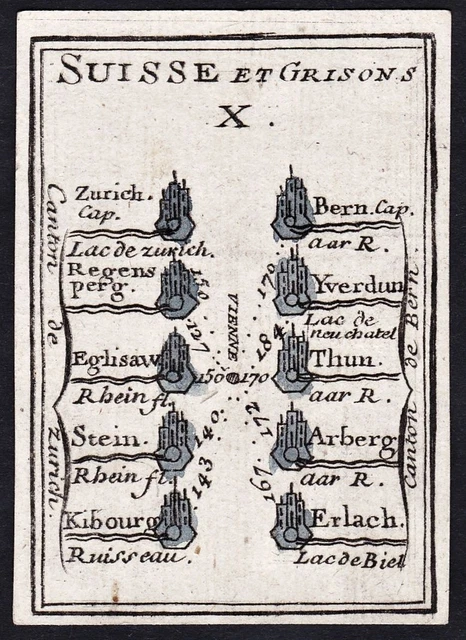 SUISSE ET GRISONS
X.
Canton de Zurich.
Zurich.
Cap.
Lac de zurich.
Regens
perg.
Eglisaw
Rhein fl.
Stein.
Rhein fl.
Kibourg
Ruisseau.
150
147
150
140
143
VIENNE
170
184
170
172
167.
Bern. Cap.
aar R.
Yverdun
Lac de
neuchatel
Thun.
aar R.
Arberg
aar R.
Erlach.
Lac de Biel
canton de Bern.